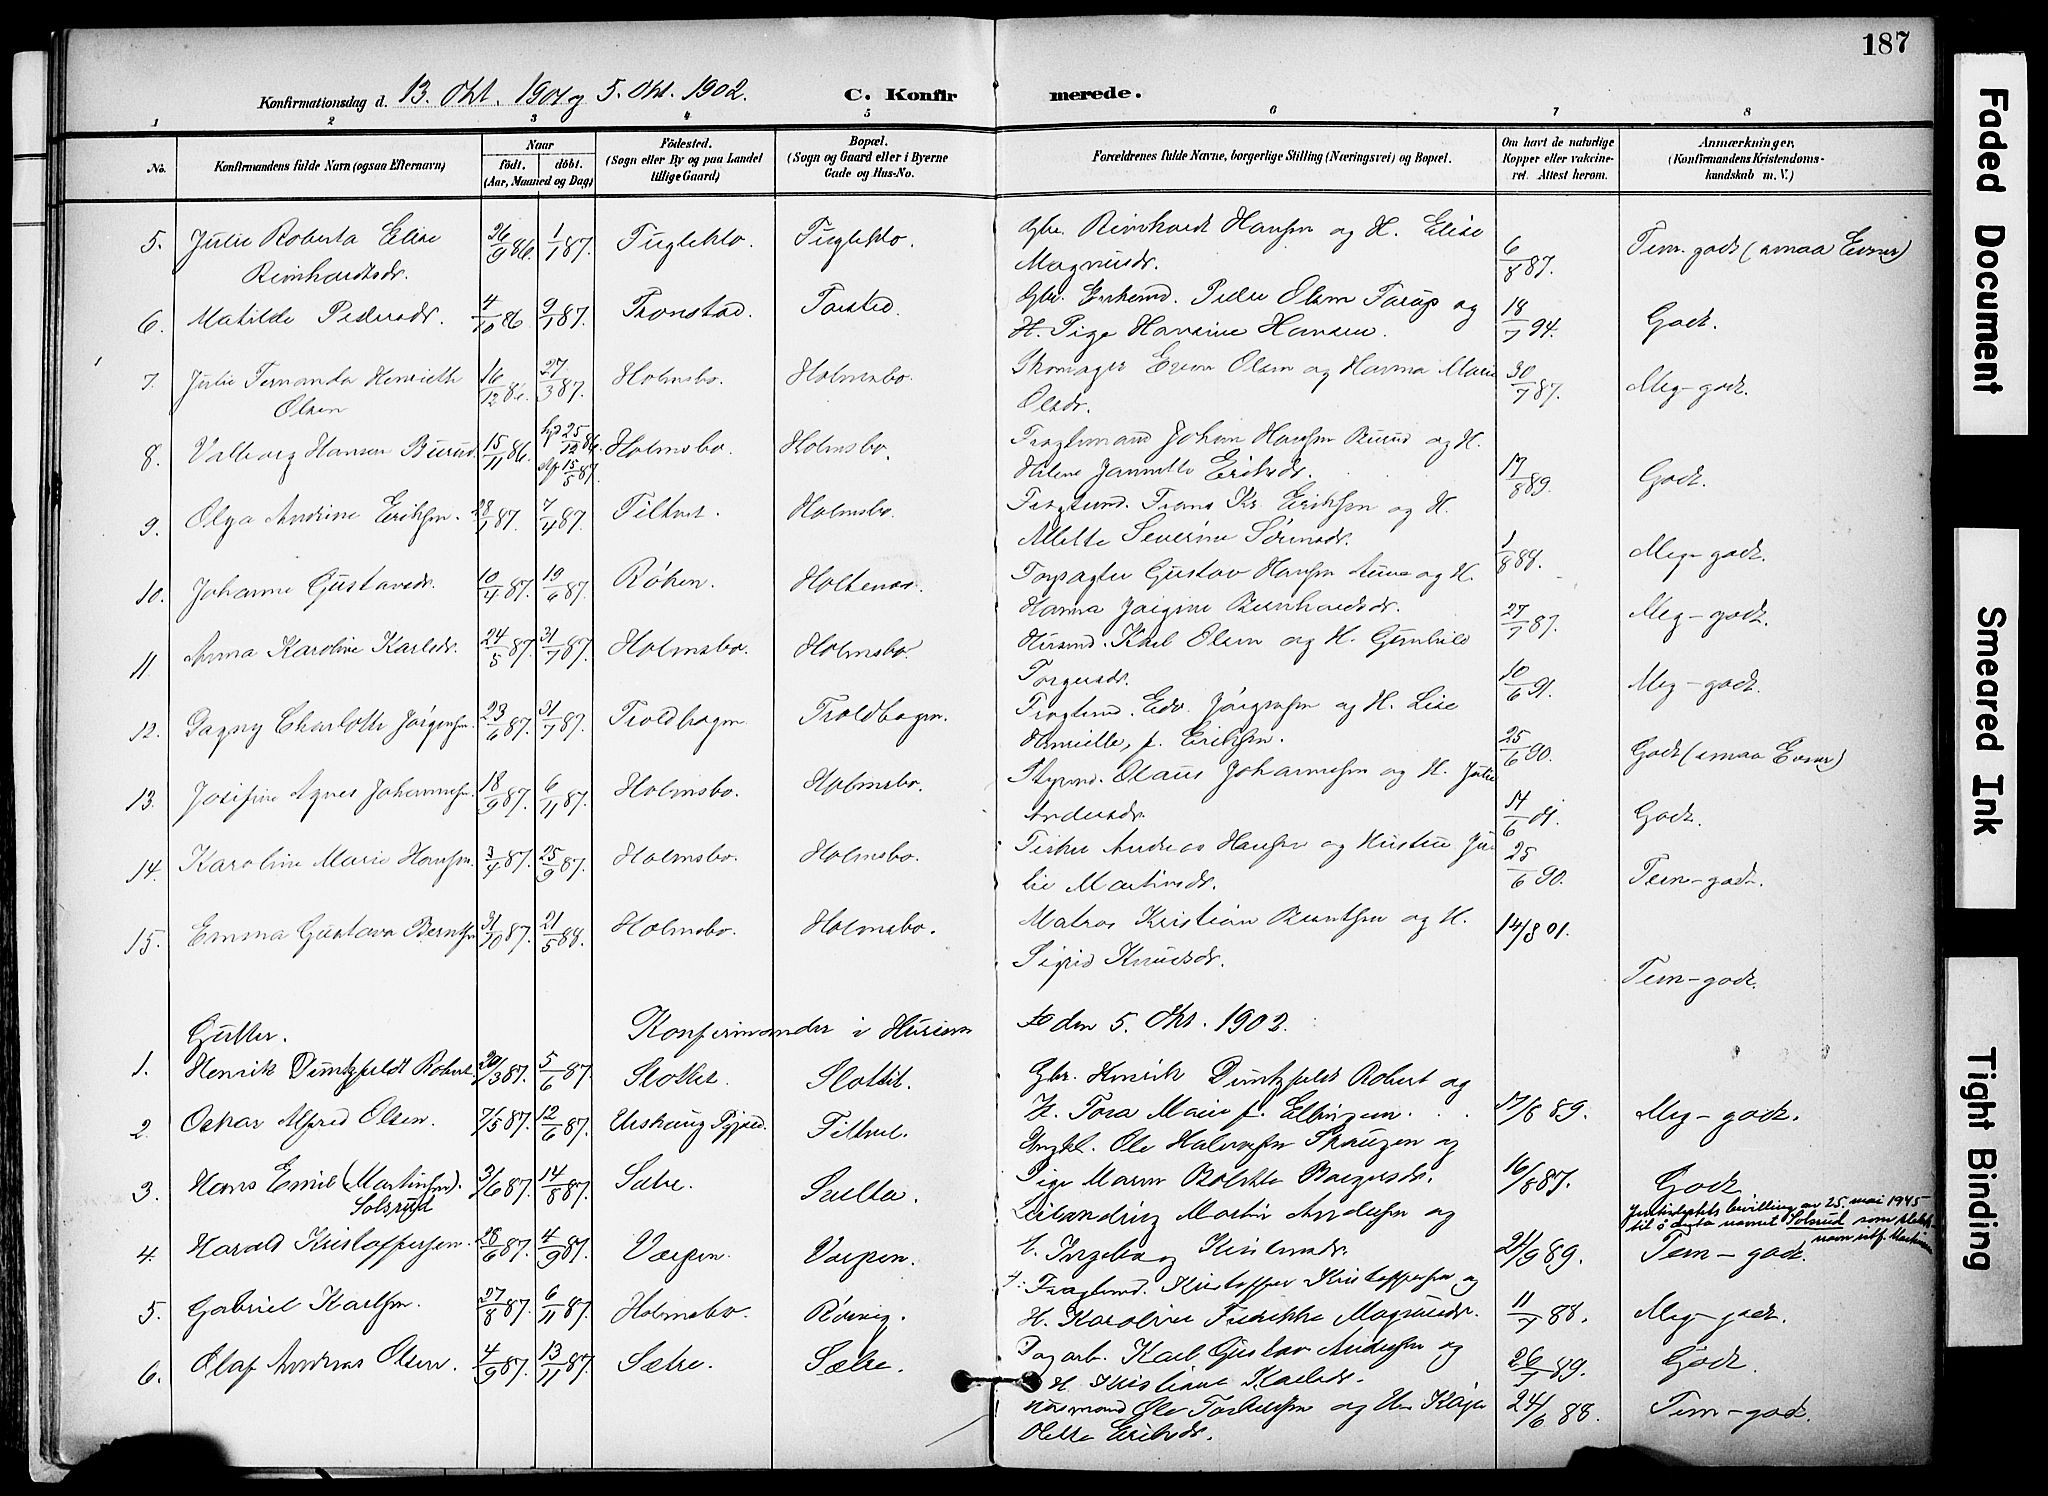 187
Konfirmationsdag d. 13. Okt. 1901 og 5. Okt. 1902. C. Konfirmerede.
1 2 3 4 5 6 7 8
No.
Konfirmandens fulde Navn (ogsaa Efternavn)
Naar
født. døbt.
(Aar, Maaned og Dag)
Fødested.
(Sogn eller By og paa Landet
tillige Gaard)
Bopæl.
(Sogn og Gaard eller i Byerne
Gade og Hus-No.
Forældrenes fulde Navne, borgerlige Stilling (Næringsvei) og Bopæl.
Om havt de naturlige
Kopper eller vakcine-
ret. Attest herom.
Anmærkninger.
(Konfirmandens Kristendoms-
kundskab m. V.)
5. Julie Roberta Elise 26/9 86. 1/1 87. Fuglekto. Fuglekto. Gbr. Reinhardt Hansen og H. Elise
Reinhardtsdr. Magnusdr. 6/8 87. Tem. godt (smaa Evner)
6. Matilde Pedersdr. 4/10 86 9/1 87. Tronstad. Torsted. Gbr. Enkemd. Peder Olsen Torup og
H. Pige Hansine Hansen. 18/7 94. Godt.
7. Julie Fernanda Henriette 16/12 86. 27/3 87. Holmsbo. Holmsbo. Skomager Even Olsen og Hanna Marie
Olsen Olsdr. 30/7 87. Meg-godt.
8. Valborg Hansen Burud 15/11 86. hjd 25/12 86 15/5 87. Holmsbo. Holmsbo. Fragtemand Johan Hansen Burud og H.
Helene Jannette Eriksdr. 17/8 89. Godt.
9. Olga Andrine Eriksen. 28/1 87. 7/4 87. Filtvet. Holmsbo. Fragtemd. Frans Kr. Eriksen og H.
Mette Severine Sørensdr. 1/8 88. Meg-godt.
10. Johanne Gustavsdr. 10/4 87. 19/6 87. Røken. Holtenæs. Forpagter Gustav Hansen og H.
Hanna Jørgine Bernhardsdr. 27/7 87. Meg-godt.
11 Anna Karoline Karlsdr. 24/5 87. 31/7 87. Holmsbo. Holmsbo. Husmd. Karl Olsen og H. Gunhild
Torgersdr. 10/6 91. Meg-godt.
12. Dagny Charlotte Jørgensen. 23/6 87. 31/7 87. Troldhagen. Troldhagen. Fragtemd. Edv. Jørgensen og H. Lise
Henriette, f. Eriksen. 25/6 90. Godt (smaa Evner)
13. Josefine Agnes Johannesen. 18/9 87. 6/11 87. Holmsbo. Holmsbo. Styrmd. Olaus Johannesen og H. Julie
Andersdr. 14/6 01. Godt.
14. Karoline Marie Hansen. 3/4 87. 25/9 87. Holmsbo. Holmsbo. Fisker Andreas Hansen og Hustru Ju-
lie Martinsdr. 25/6 90. Tem-godt.
15. Emma Gustava Berntsen 31/10 87. 21/5 88. Holmsbo. Holmsbo. Matros Kristian Berntsen og H.
Sigrid Knudsdr. 14/8 01. Tem-godt.
Gutter. Konfirmander i Hurum den 5. Okt. 1902.
1. Henrik Duntzfeldt Robert. 20/3 87. 5/6 87. Slottet. Slottet. Gbr. Henrik Duntzfeldt Robert og
H. Tora Marie f. Ellingsen. 17/8 89. Meg-godt.
2. Oskar Alfred Olsen. 7/5 87. 12/6 87. Filtvet. Ole Halvorsen Skaugen og
Pige Maren 16/8 87. Godt
3. Hans Emil (Martinsen). 3/6 87. 14/8 87. Sætre. Martin Andersen og
Solsrud Ingeborg 21/9 89. Tem-godt.
Justisdeptets bevilling av 25. mai 1945
til å anta navnet Solsrud som slekts-
navn istf. Martinsen
4. Harald Kristoffersen. 28/6 87. 4/9 87. Værpen. Værpen. Fragtemd. Kristoffer Kristoffersen og
H. Karoline Fredrikke Magnusdr. 11/7 88. Meg-godt.
5. Gabriel Karlsen. 27/8 87. 6/11 87. Holmsbo. Rødvig. Dagarb. Karl Gustav Andersen og
H. Kristiane Karlsdr. 26/7 89. Godt.
6. Olaf Andreas Olsen. 4/9 87. 13/11 87. Sætre. Sætre. Husmand Ole Torkelsen og H. Kaja
Olette Eriksdr. 24/6 88. Tem-godt.
Faded Document
Smeared Ink
Tight Binding